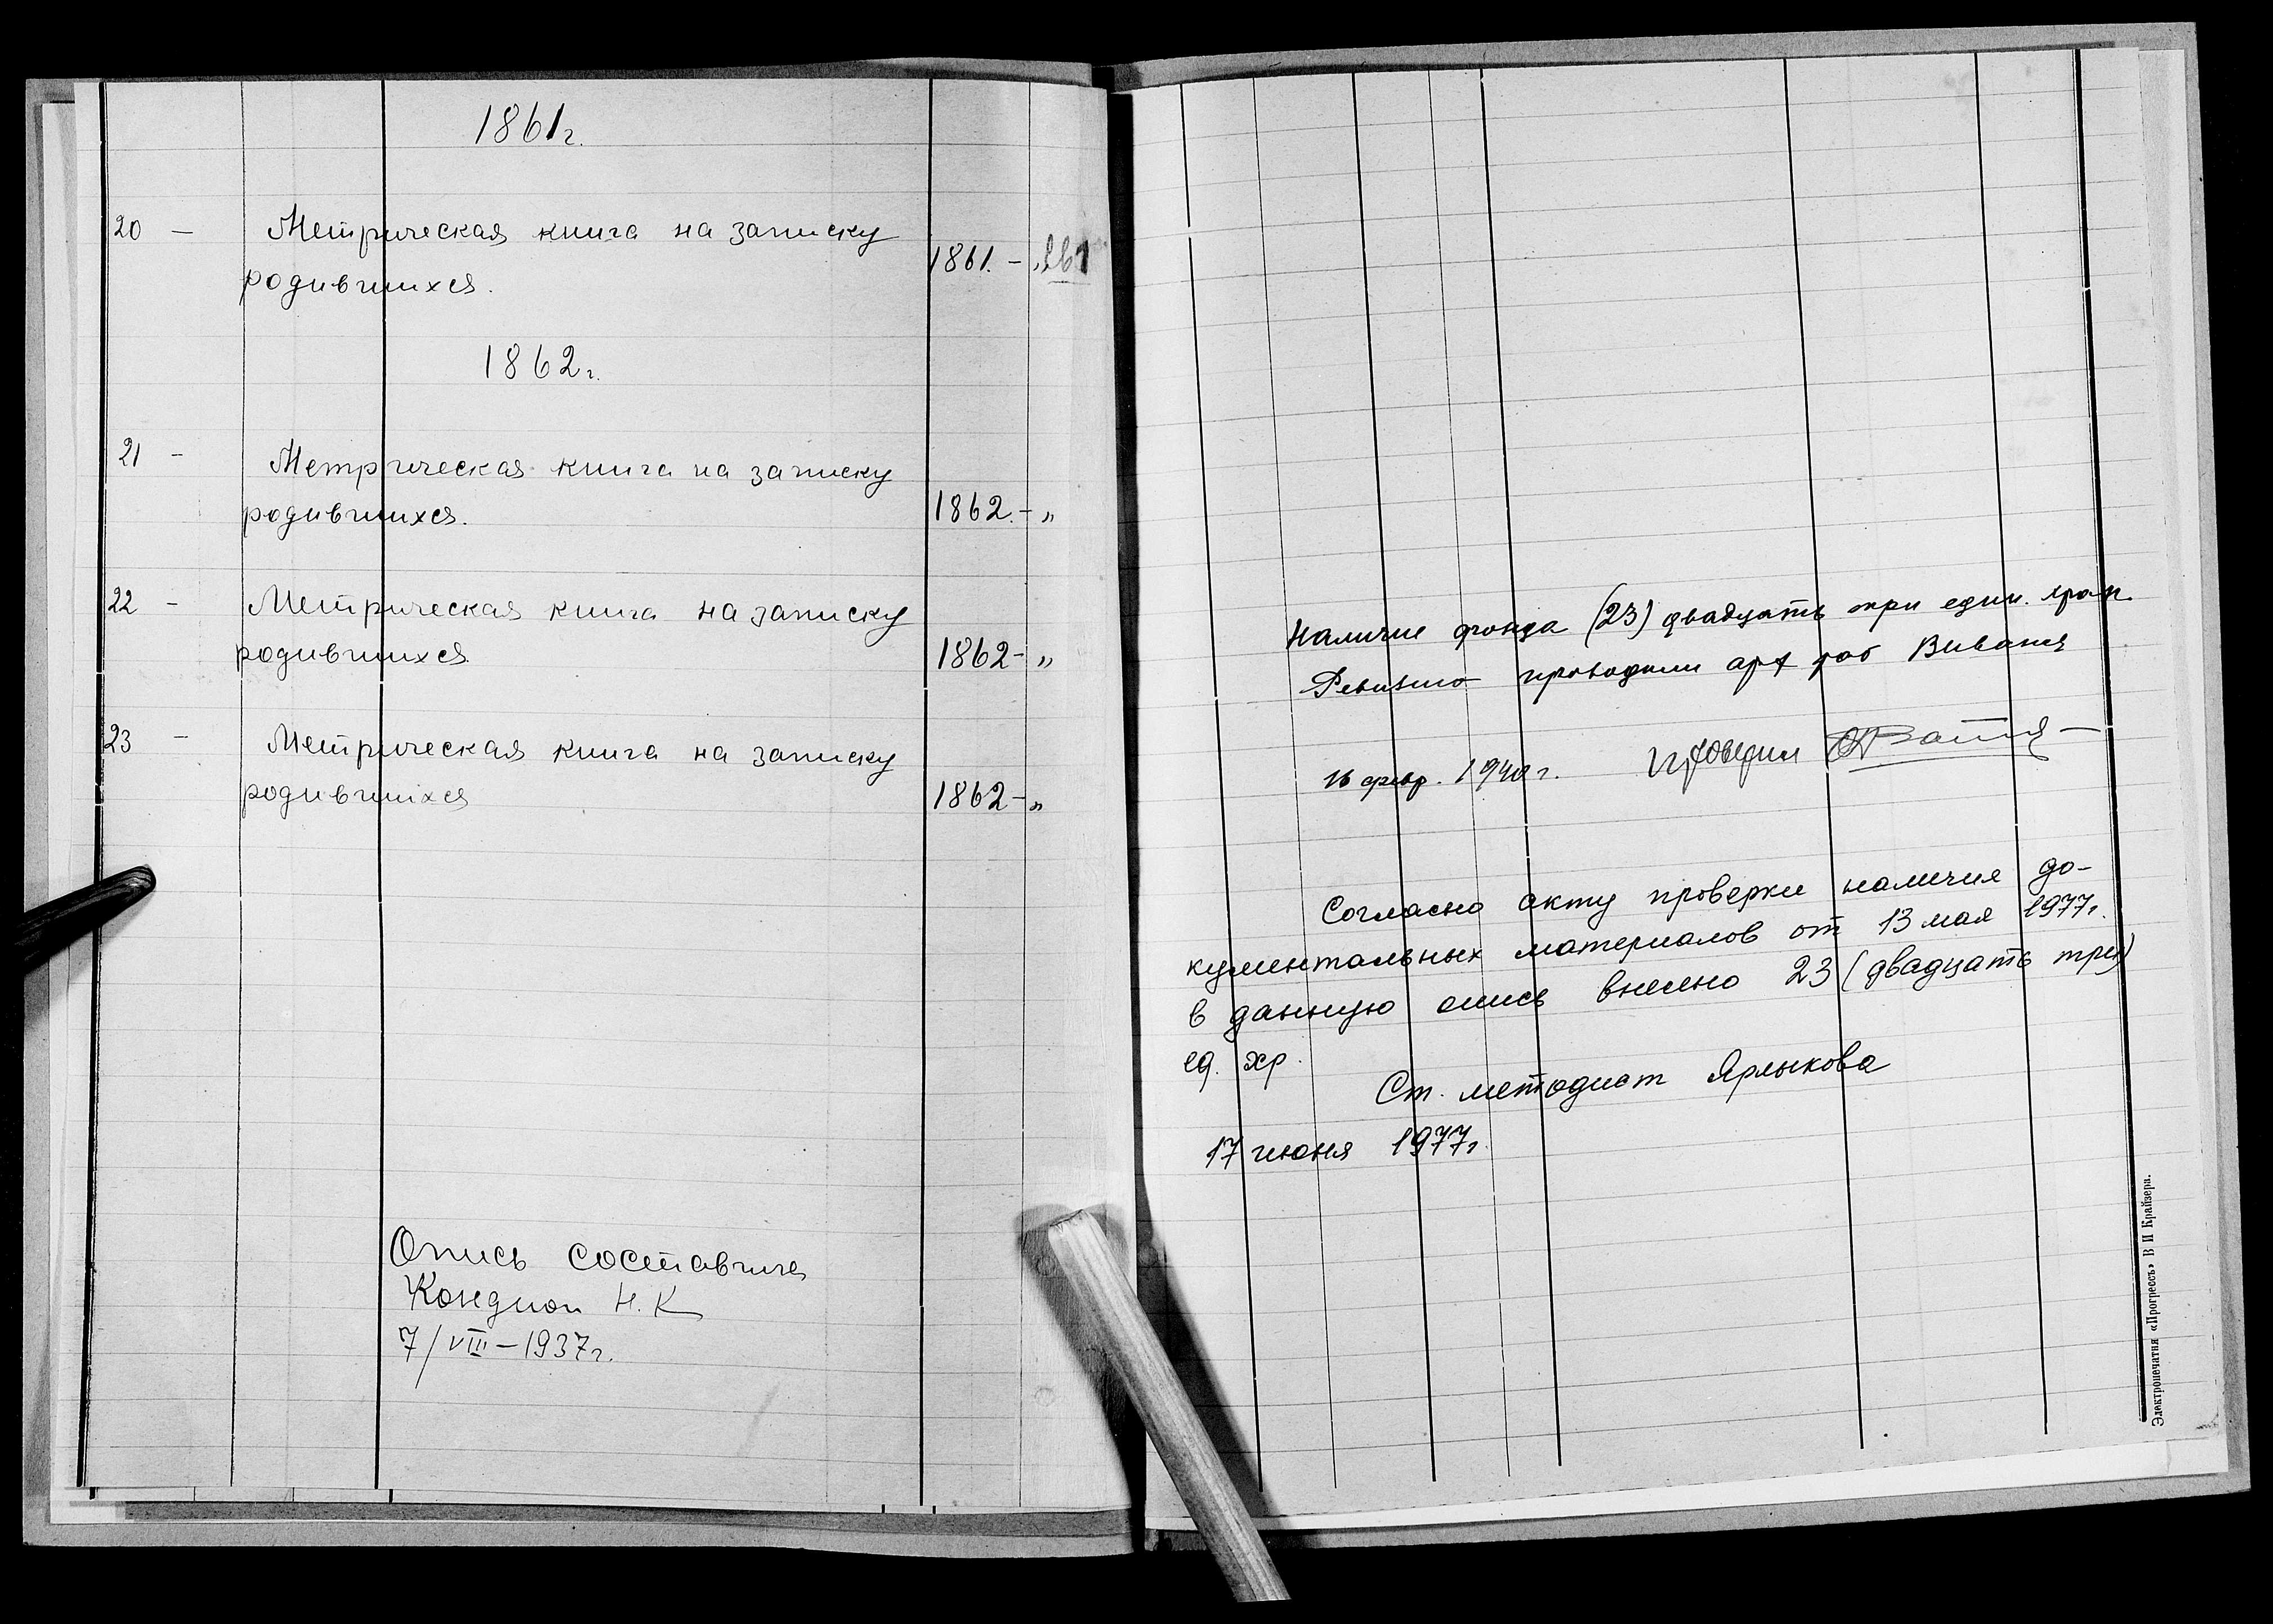 1861г.
20 — Метрическая книга на записку
родившихся. 1861. —
1862г.
21 - Метрическая книга на записку
родившихся. 1862. - „
22 - Метрическая книга на записку
родившихся 1862 - „
23 - Метрическая книга на записку
родившихся 1862 - „
Опись составила
Н.К
7/VIII-1937г.
Наличие фонда (23) двадцать три един. хран.
Ревизию проводили арх раб
16 февр. 1940 г. проверил
Согласно акту проверки наличия до-
кументальных материалов от 13 мая 1977г.
в данную опись внесено 23 (двадцать три)
ед. хр.
Ст. методист Ярлыкова
17 июня 1977г.
Электропечатня «Прогрессъ» В П Крайзера.